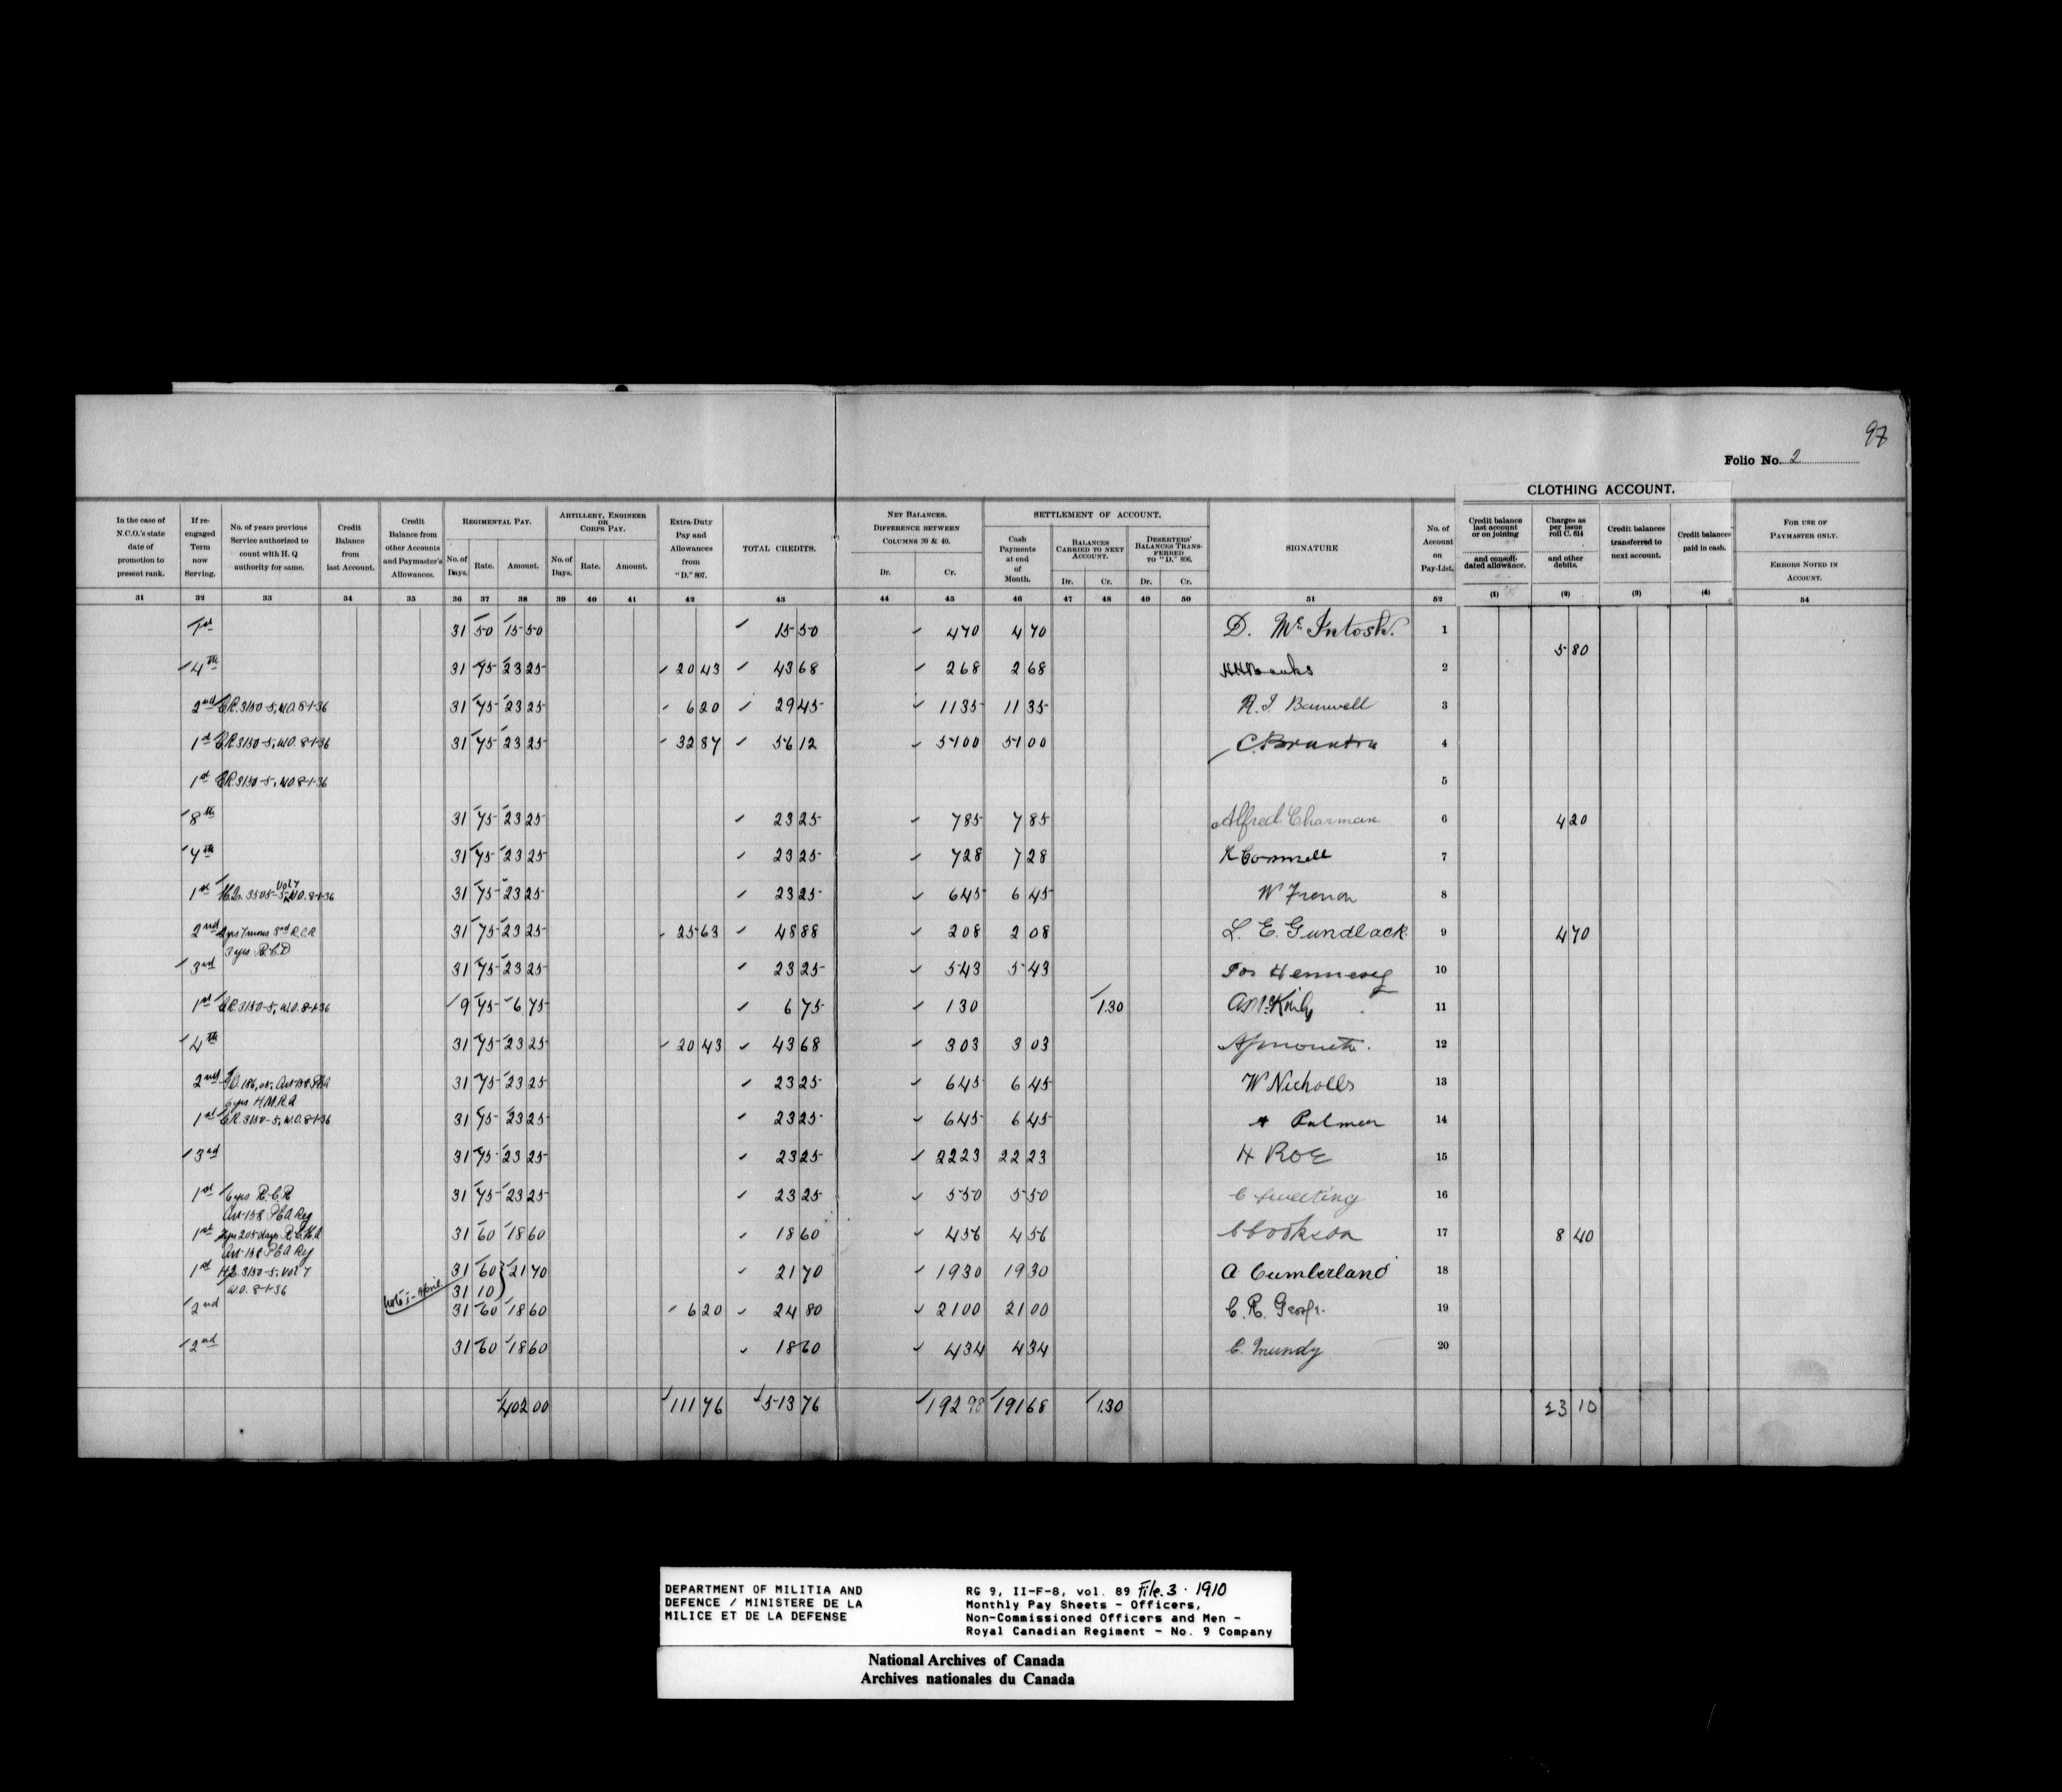 97
Folio No. 2
CLOTHING ACCOUNT.
In the case of N.C.O.'s state date of promotion to present rank.
If re-engaged Term now Serving.
No. of years previous Service authorized to count with H. Q authority for same.
Credit Balance from last Account.
Credit Balance from other Accounts and Paymaster's Allowances.
REGIMENTAL PAY.
No. of Days. Rate. Amount.
ARTILLERY, ENGINEER OR CORPS PAY.
No. of Days. Rate. Amount.
EXTRA-DUTY Pay and Allowances from "D." 807.
TOTAL CREDITS.
NET BALANCES. DIFFERENCE BETWEEN COLUMNS 30 & 40.
Dr. Cr.
SETTLEMENT OF ACCOUNT.
Cash Payments at end of Month.
BALANCES CARRIED TO NEXT ACCOUNT.
Dr. Cr.
DESERTERS' BALANCES TRANSFERRED TO "D." 806.
Dr. Cr.
SIGNATURE
No. of Account on Pay-List.
Credit balance last account or on joining and consolidated allowance.
Charges as per issue roll C. 614 and other debits.
Credit balances transferred to next account.
Credit balances paid in cash.
FOR USE OF PAYMASTER ONLY.
ERRORS NOTED IN ACCOUNT.
31 32 33 34 35 36 37 38 39 40 41 42 43 44 45 46 47 48 49 50 51 52 (1) (2) (3) (4) 54
1st 31 50 15 50 15 50 4 70 4 70 D. McIntosh. 1
5 80
4th 31 75 23 25 20 43 43 68 2 68 2 68 HHBanks 2
2nd C.R. 3150-5, W.O. 8-1-36 31 75 23 25 6 20 29 45 11 35 11 35 R. J. Banwell 3
1st C.R. 3150-5, W.O. 8-1-36 31 75 23 25 32 87 56 12 51 00 51 00 C. Branton 4
1st C.R. 3150-5, W.O. 8-1-36 5
8th 31 75 23 25 23 25 7 85 7 85 Alfred Charman 6 4 20
7th 31 75 23 25 23 25 7 28 7 28 7
1st H.Q. 3505-5, Vol 7 W.O. 8-1-36 31 75 23 25 23 25 6 45 6 45 W 8
2nd 2 yrs 7 mons 3rd R.C.R 31 75 23 25 25 63 48 88 2 08 2 08 L. E. Gundlack. 9 4 70
3 yrs R.C.D
3rd 31 75 23 25 23 25 5 43 5 43 Jos Hennesey 10
1st C.R. 3150-5, W.O. 8-1-36 9 75 6 75 6 75 1 30 1.30 11
4th 31 75 23 25 20 43 43 68 3 03 3 03 12
2nd 31 75 23 25 23 25 6 45 6 45 W Nicholls 13
6 yrs H.M.R.A
1st C.R. 3150-5, W.O. 8-1-36 31 75 23 25 23 25 6 45 6 45 Palmer 14
3rd 31 75 23 25 23 25 22 23 22 23 H ROE 15
1st 6 yrs R.C.R 31 75 23 25 23 25 5 50 5 50 C Sweeting 16
Art 158 P&A Reg
1st 205 days R.C.H.A 31 60 18 60 18 60 4 56 4 56 C Cookson 17 8 40
Art 158 P&A Reg
1st H.Q. 3150-5, Vol 7 31 60 21 70 21 70 19 30 19 30 A Cumberland 18
W.O. 8-1-36 31 10
2nd 31 60 18 60 6 20 24 80 21 00 21 00 C. R. 19
2nd 31 60 18 60 18 60 4 34 4 34 C. Mundy 20
402 00 111 76 513 76 192 98 191 68 1.30 23 10
DEPARTMENT OF MILITIA AND
DEFENCE / MINISTERE DE LA
MILICE ET DE LA DEFENSE
RG 9, II-F-8, vol. 89 File. 3 · 1910
Monthly Pay Sheets - Officers,
Non-Commissioned Officers and Men -
Royal Canadian Regiment - No. 9 Company
National Archives of Canada
Archives nationales du Canada